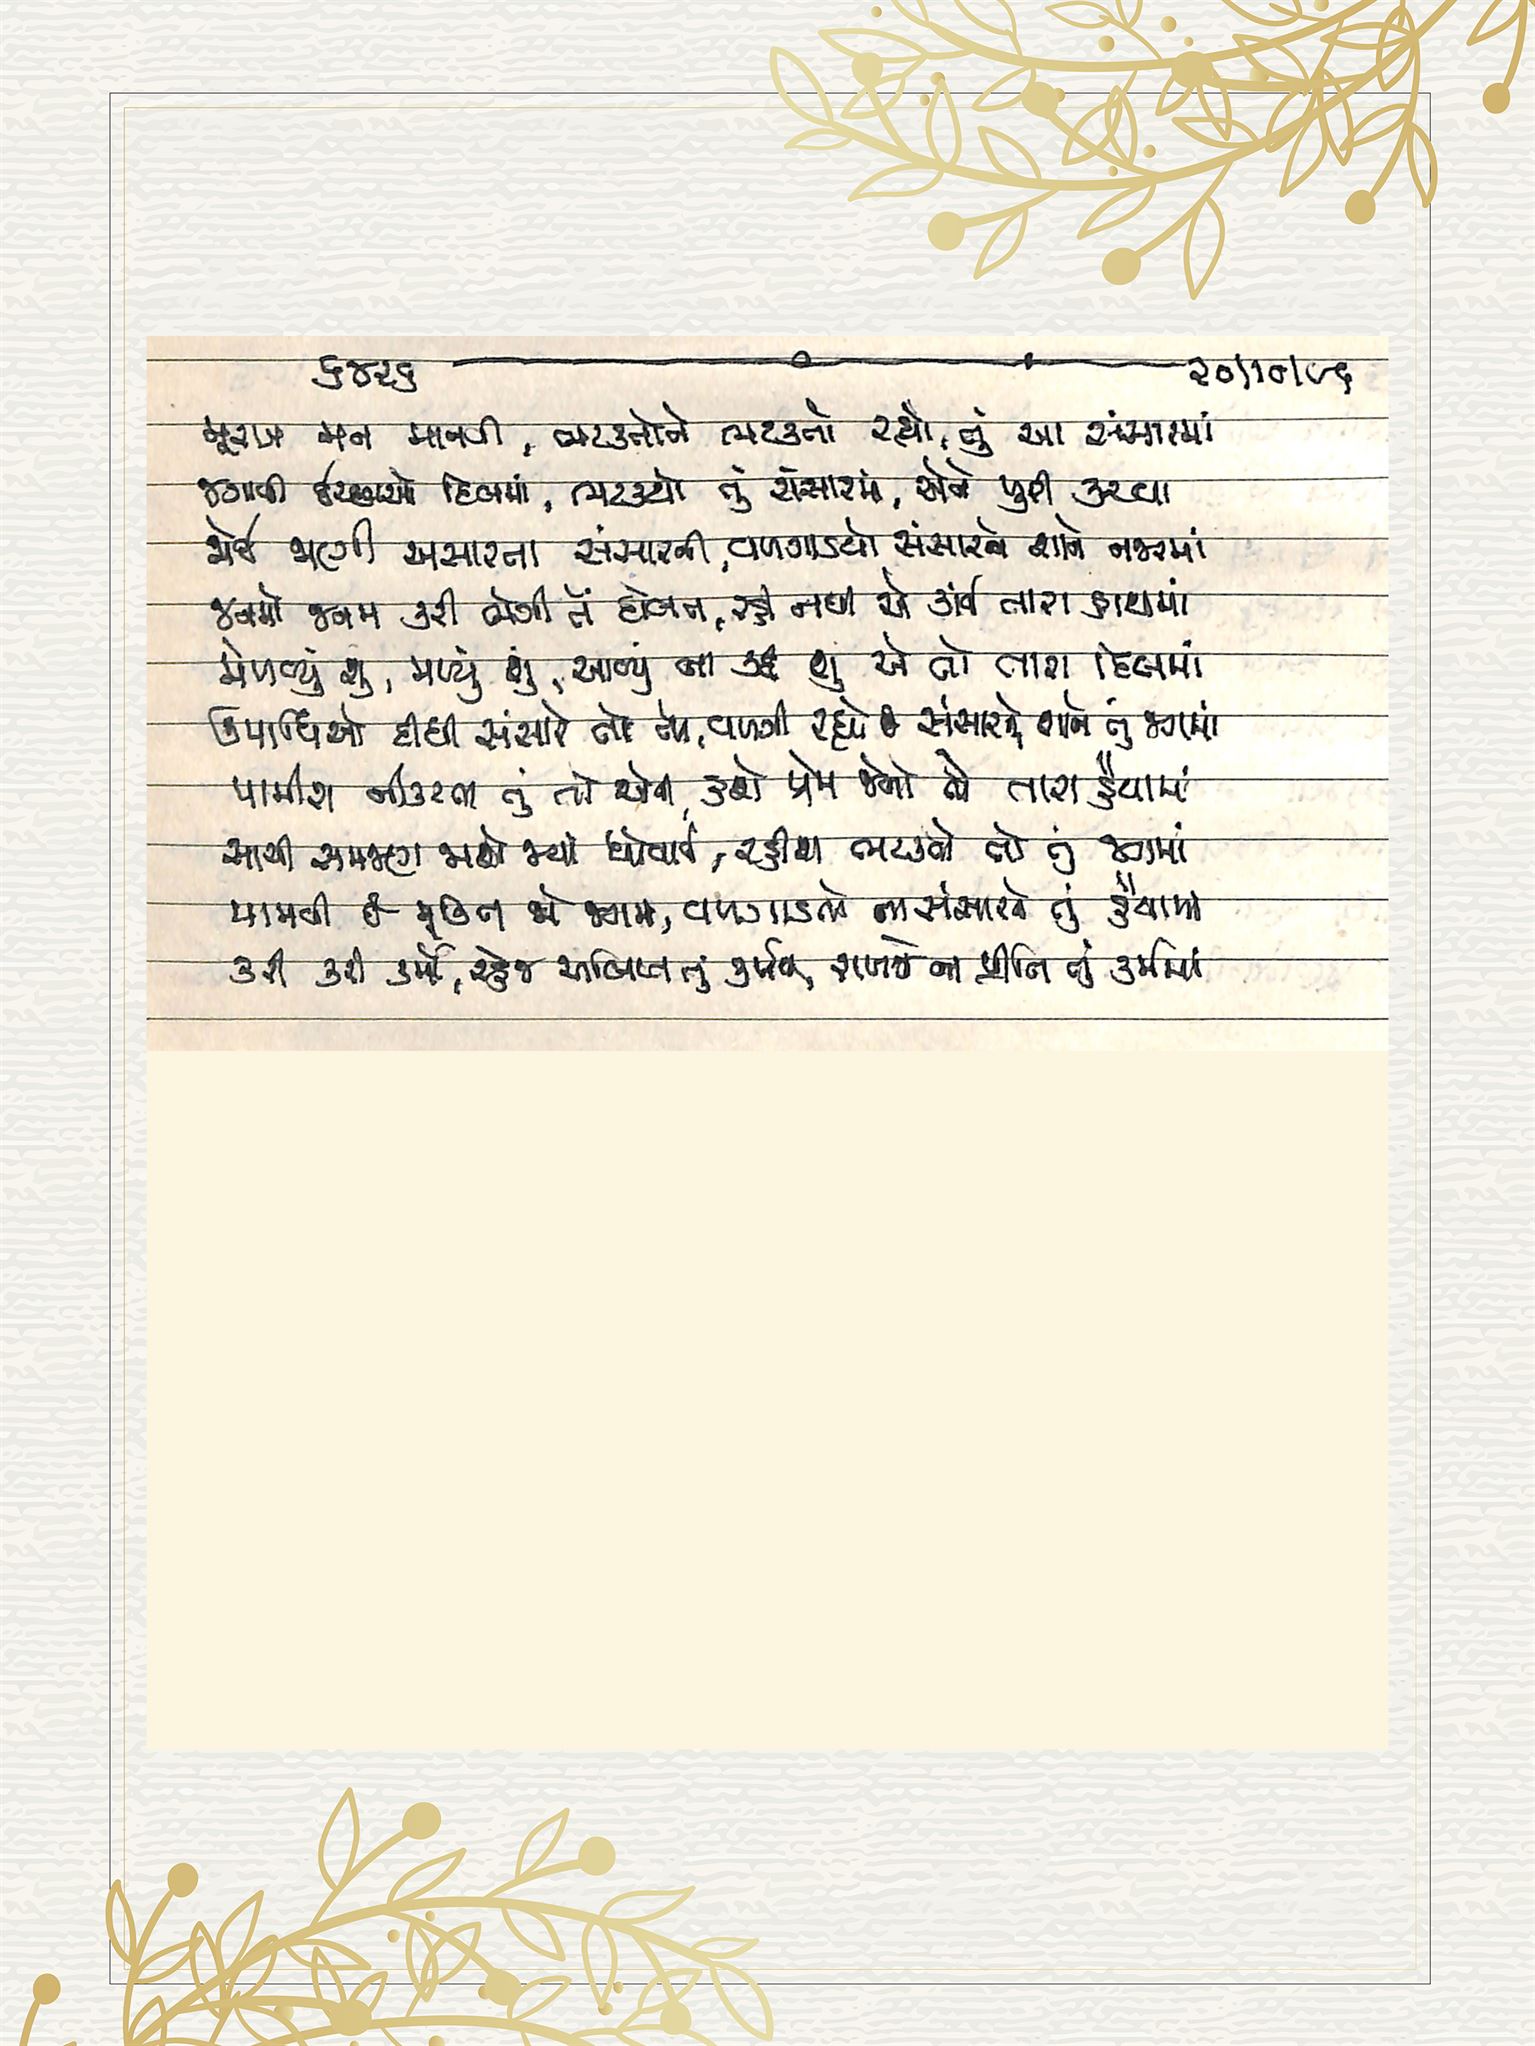 ૬૪૨૬ ૨૦/૧૦/૯૬
મૂરખ મન માનવી, ભટકતોને ભટકતો રહ્યો, તું આ સંસારમાં
જગાવી ઈચ્છાઓ દિલમાં, ભટક્યો તું સંસારમાં, એને પુરી કરવા
અસારના સંસારની, વળગાડયો સંસારને શાને નજરમાં
જનમો જનમ કરી ભેગી તેં દોલત, રહી નથી એ કાંઈ તારા હાથમાં
મેળવ્યું શું, મળ્યું શું, આવ્યું ના કાંઈ શું એ તો તારા દિલમાં
ઉપાધિઓ દીધી સંસારે તો તને, વળગી રહ્યો છે સંસારને શાને તું જગમાં
પામીશ નીકટતા તું તો એવી, હશે પ્રેમ જેવો તો તારા હૈયામાં
સાચી સમજણ જાશે જ્યાં ખોવાઈ, રહીશ ભટકતો તો તું જગમાં
પામવી છે મુક્તિ જો જગમાં, વળગાડતો ના સંસારને તું હૈયામાં
કરી કરી કર્મો, રહેજે અલિપ્ત તું કર્મમાં, રાખજે ના પ્રીતિ તું કર્મમાં